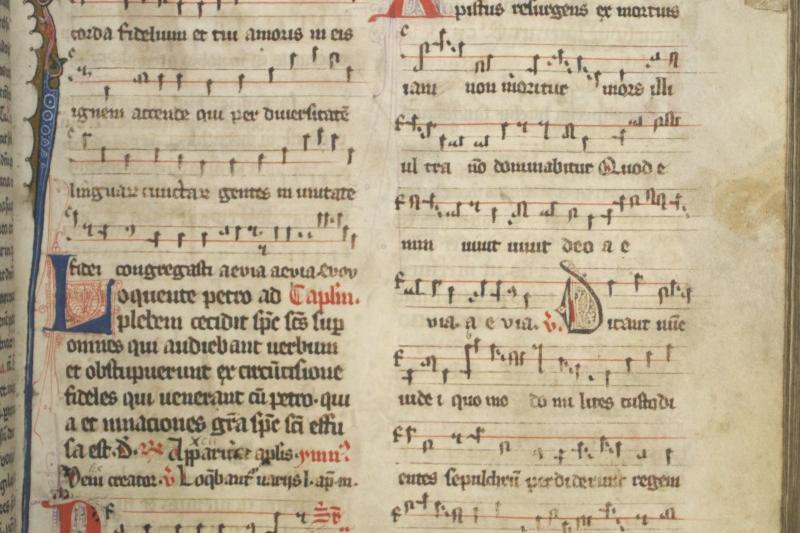 corda fidelium et tui amoris in eis
ignem accende qui per diuersitatē
linguaꝝ cunctaꝝ gentes in unitate
fidei congregasti aevia aevia. evov
Loquente petro ad Caplm.
plebem cecidit spc̄ scs̄ sup
omnes qui audiebant uerbum
et obstupuerunt ex circūcisione
fideles qui uenerant cū petro. qui
a et in nationes grā spc̄ sci effu
sa est. Apparuer aplis. ymn.
Veni creator. Loq̄bant uarijs l. ap̄m.
xpistus resurgens ex mortuis
iam non moritur mors illi
ul tra nō dominabitur Quod e
nim uiuit uiuit deo a e
via. a e via. v. Dicant nūc
iude i quo mo do mi lites custodi
entes sepulchrū perdiderunt regem